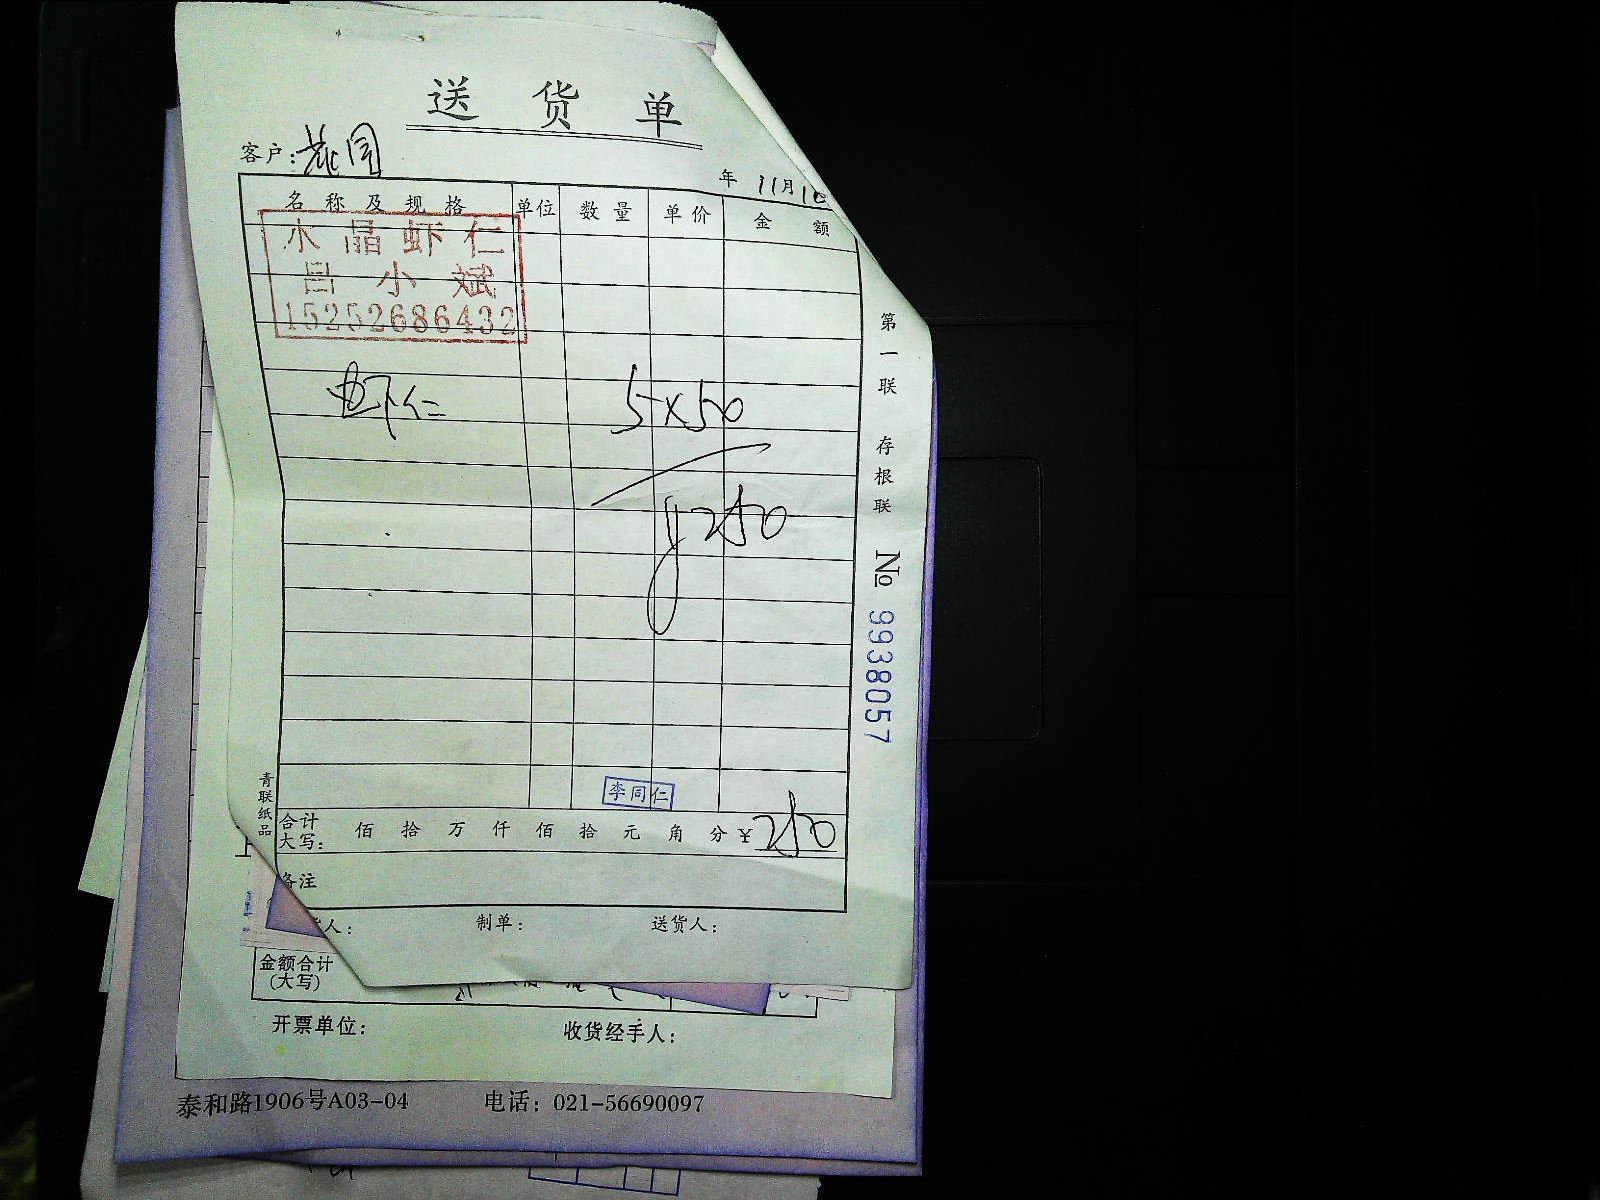 送货单
客户：花园
年 11月10
名称及规格 单位 数量 单价 金额
水晶虾仁
吕小斌
15252686432
虾仁 5×50
250
第一联 存根联 № 9938057
李同仁
青联纸品
合计大写： 佰 拾 万 仟 佰 拾 元 角 分 ¥250
备注
人： 制单： 送货人：
金额合计
(大写)
开票单位： 收货经手人：
泰和路1906号A03-04 电话：021-56690097